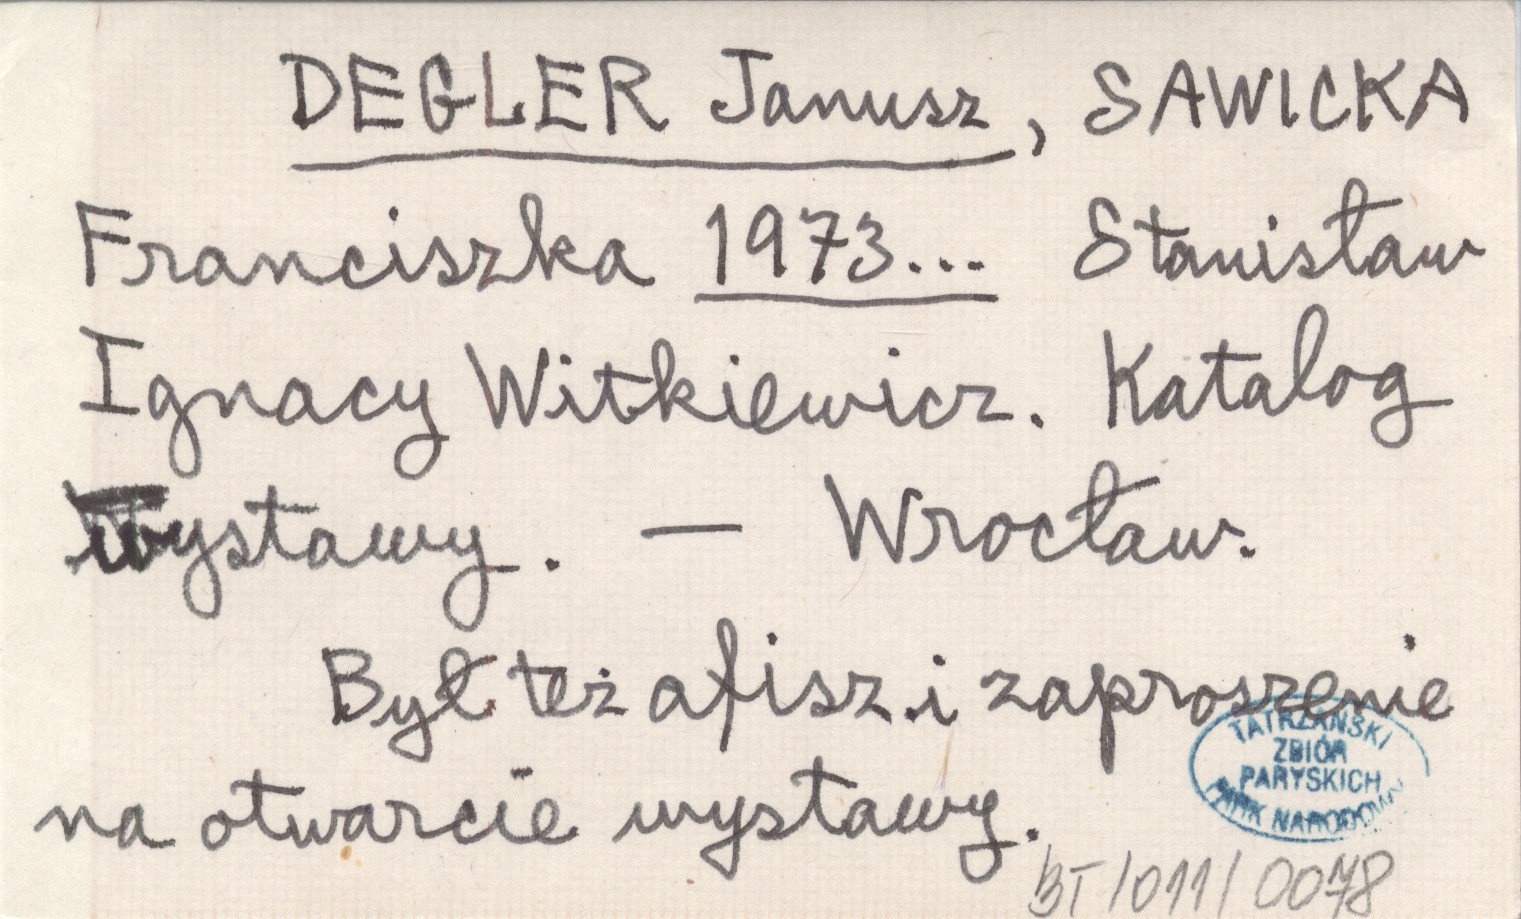 DEGLER Janusz, SAWICKA
Franciszka 1973... Stanisław
Ignacy Witkiewicz. Katalog
wystawy. — Wrocław.
Był też afisz i zaproszenie
na otwarcie wystawy.
TATRZAŃSKI
ZBIÓR
PARYSKICH
PARK NARODOWY
BT/011/0078